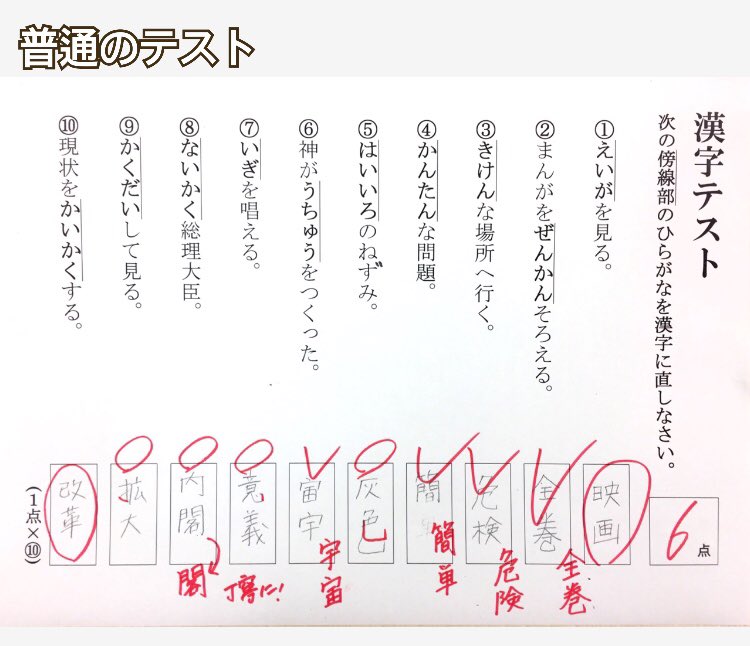 普通のテスト
漢字テスト
次の傍線部のひらがなを漢字に直しなさい。
6点
①えいがを見る。
映画
②まんがをぜんかんそろえる。
全巻
全巻
③きけんな場所へ行く。
危検
危険
④かんたんな問題。
簡
簡単
⑤はいいろのねずみ。
灰色
⑥神がうちゅうをつくった。
宙宇
宇宙
⑦いぎを唱える。
意義
丁寧に!
⑧ないかく総理大臣。
内閣
閣
⑨かくだいして見る。
拡大
⑩現状をかいかくする。
改革
(1点×⑩)